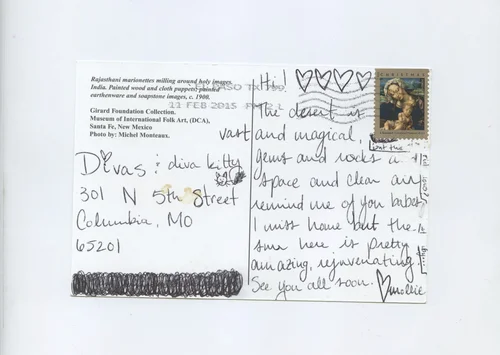 Rajasthani marionettes milling around holy images.
India. Painted wood and cloth puppets; painted
earthenware and soapstone images, c. 1900.
Girard Foundation Collection.
Museum of International Folk Art, (DCA),
Santa Fe, New Mexico
Photo by: Michel Monteaux.
TX
11 FEB 2015
CHRISTMAS
Divas: diva kitty
301 N 5th Street
Columbia, MO
65201
Hi!
the desert is
vast and magical,
but the
gems and rocks
space and clean air
remind me of you babes
I miss home but the
sun here is pretty
amazing, rejuvenating.
See you all soon. mollie